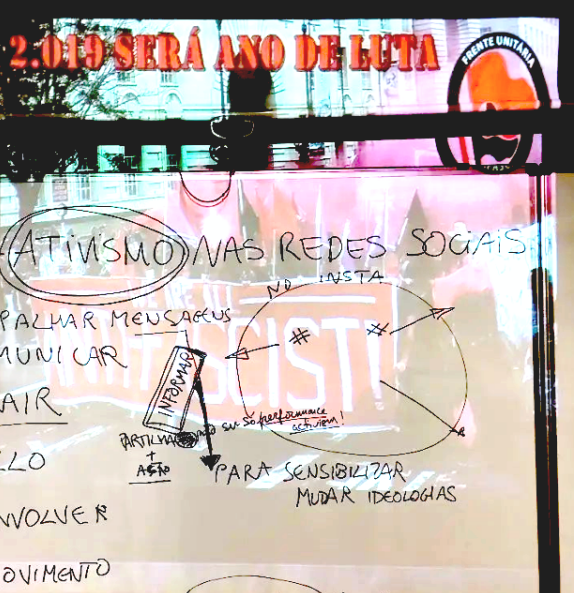 2.019 SERÁ ANO DE LUTA
FRENTE UNITÁRIA
ATIVISMO NAS REDES SOCIAIS
NO INSTA
PALHAR MENSAGENS
MUNICAR
# #
INFORMAR
ANTIFASCIST!
AIR
só performance
activism!
PARTILHA
+
AÇÃO
LLO
PARA SENSIBILIZAR
MUDAR IDEOLOGIAS
NVOLVER
OVIMENTO